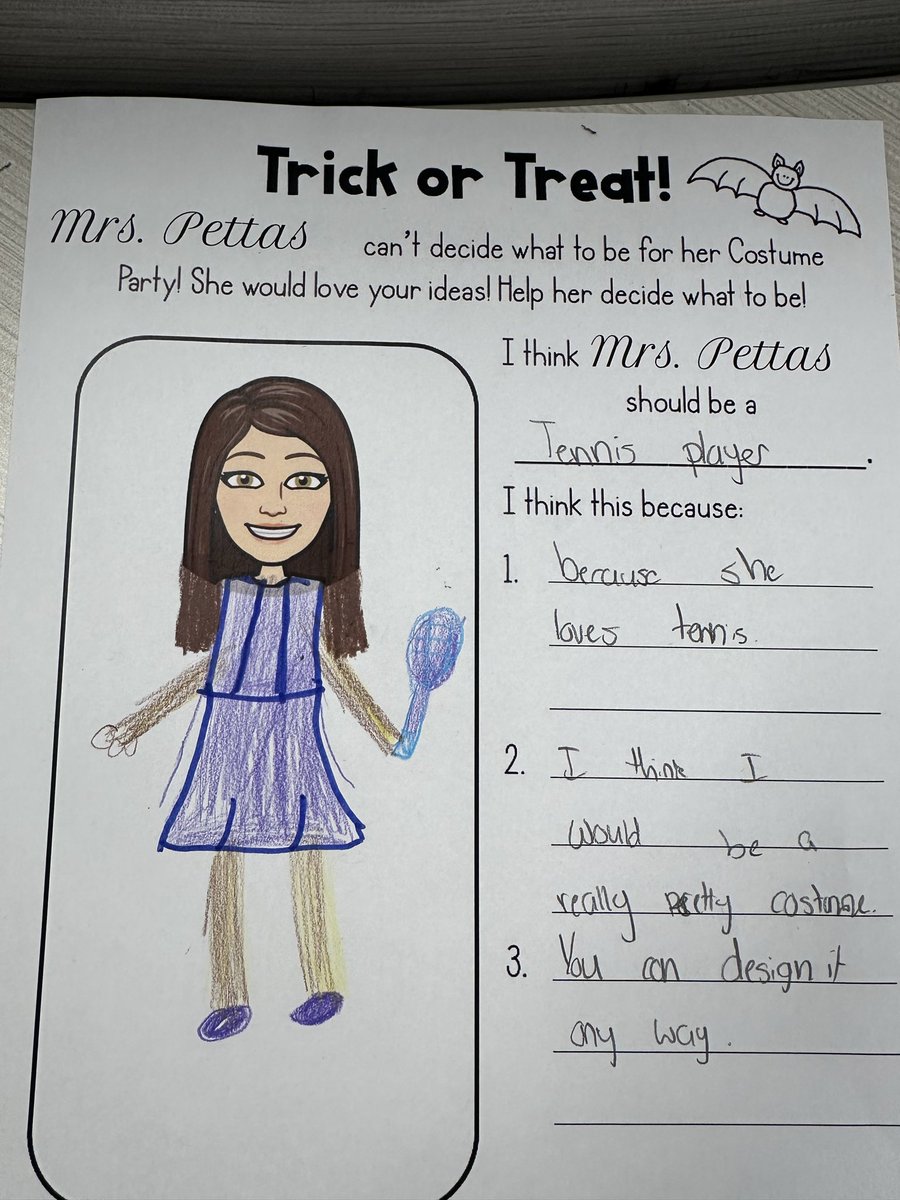 Trick or Treat!
Mrs. Pettas can't decide what to be for her Costume
Party! She would love your ideas! Help her decide what to be!
I think Mrs. Pettas
should be a
Tennis player.
I think this because:
1. because she
loves tennis.
2. I think I
would be a
really pretty costume.
3. You can design it
any way.